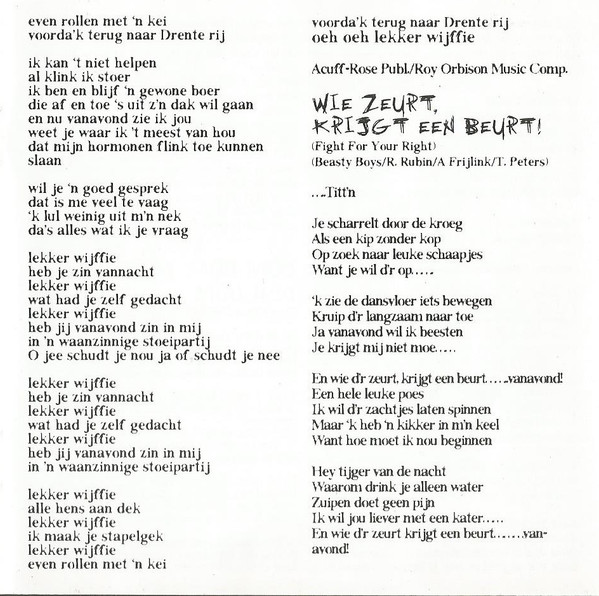 even rollen met 'n kei
voorda'k terug naar Drente rij

ik kan 't niet helpen
al klink ik stoer
ik ben en blijf 'n gewone boer
die af en toe 's uit z'n dak wil gaan
en nu vanavond zie ik jou
weet je waar ik 't meest van hou
dat mijn hormonen flink toe kunnen
slaan

wil je 'n goed gesprek
dat is me veel te vaag
'k lul weinig uit m'n nek
da's alles wat ik je vraag

lekker wijffie
heb je zin vannacht
lekker wijffie
wat had je zelf gedacht
lekker wijffie
heb jij vanavond zin in mij
in 'n waanzinnige stoeipartij
O jee schudt je nou ja of schudt je nee

lekker wijffie
heb je zin vannacht
lekker wijffie
wat had je zelf gedacht
lekker wijffie
heb jij vanavond zin in mij
in 'n waanzinnige stoeipartij

lekker wijffie
alle hens aan dek
lekker wijffie
ik maak je stapelgek
lekker wijffie
even rollen met 'n kei

voorda'k terug naar Drente rij
oeh oeh lekker wijffie

Acuff-Rose Publ./Roy Orbison Music Comp.

WIE ZEURT,
KRIJGT EEN BEURT!
(Fight For Your Right)
(Beasty Boys/R. Rubin/A Frijlink/T. Peters)

....Titt'n

Je scharrelt door de kroeg
Als een kip zonder kop
Op zoek naar leuke schaapjes
Want je wil d'r op.....

'k zie de dansvloer iets bewegen
Kruip d'r langzaam naar toe
Ja vanavond wil ik beesten
Je krijgt mij niet moe.....

En wie d'r zeurt, krijgt een beurt......vanavond!
Een hele leuke poes
Ik wil d'r zachtjes laten spinnen
Maar 'k heb 'n kikker in m'n keel
Want hoe moet ik nou beginnen

Hey tijger van de nacht
Waarom drink je alleen water
Zuipen doet geen pijn
Ik wil jou liever met een kater.....
En wie d'r zeurt krijgt een beurt.......van-
avond!